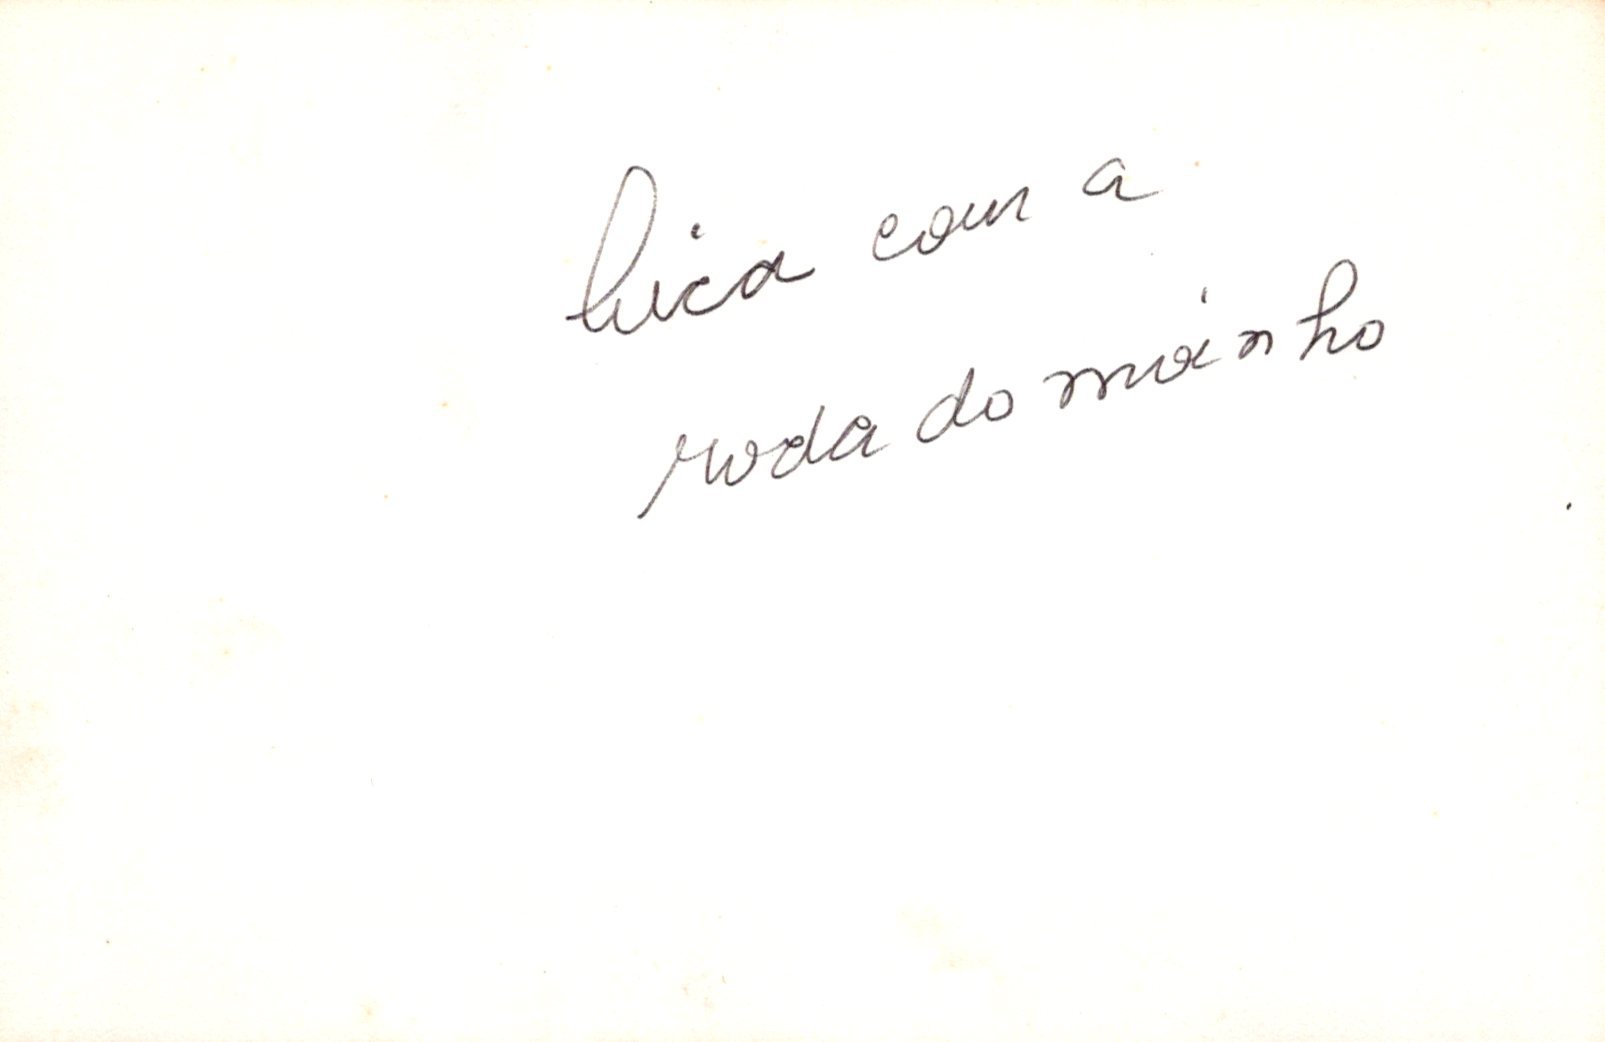 bica com a
roda do moinho